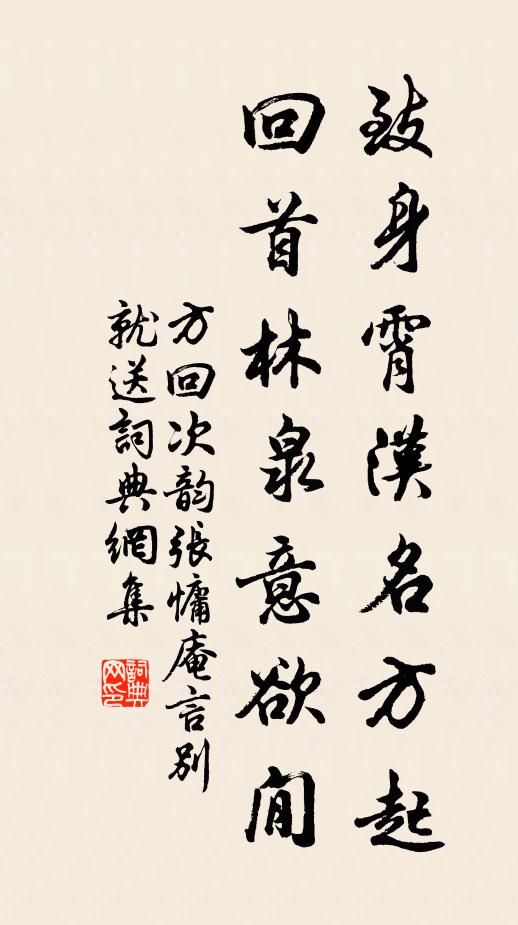 致身霄漢名方起
回首林泉意欲閒
方回次韵張慵庵言別
就送詞典網集
詞典网印